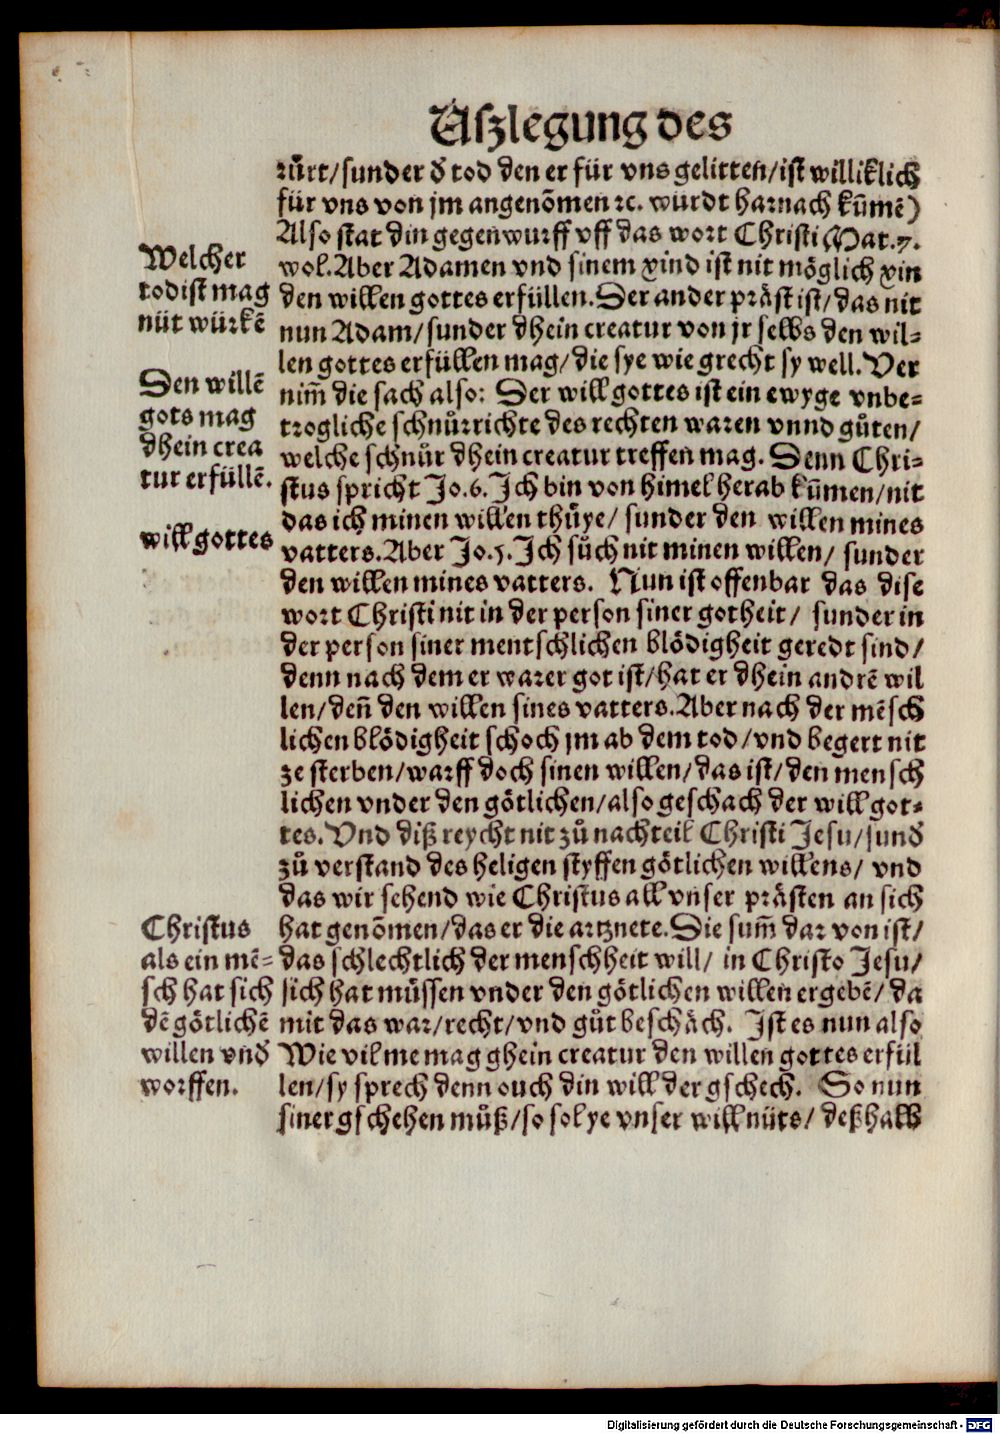 Uszlegung des
rürt/sunder d̕ tod den er für vns gelitten/ist williklich
für vns von jm angenõmen ꝛc. würdt harnach kum̃ẽ)
Also stat din gegenwurff vff das wort Christi Mat.7.
wol. Aber Adamen vnd sinem xind ist nit möglich xin
den willen gottes erfüllen. Der ander präst ist/das nit
nun Adam/sunder dhein creatur von jr selbs den wil-
len gottes erfüllen mag/die sye wie grecht sy well. Ver
nim̃ die sach also: Der will gottes ist ein ewyge vnbe-
trogliche schnůrrichte des rechten waren vnnd gůten/
welche schnůr dhein creatur treffen mag. Denn Chri-
stus spricht Jo.6. Ich bin von himel herab kum̃en/nit
das ich minen willen thůye/ sunder den willen mines
vatters. Aber Jo.5. Ich sůch nit minen willen/ sunder
den willen mines vatters. Nun ist offenbar das dise
wort Christi nit in der person siner gotheit/ sunder in
der person siner mentschlichen blödigheit geredt sind/
denn nach dem er warer got ist/hat er dhein andrẽ wil
len/deñ den willen sines vatters. Aber nach der mẽsch
lichen blödigheit schoch jm ab dem tod/vnd begert nit
ze sterben/warff doch sinen willen/das ist/den mensch
lichen vnder den götlichen/also geschach der will got-
tes. Vnd diß reycht nit zů nachteil Christi Jesu/sund̕
zů verstand des heligen styffen götlichen willens/ vnd
das wir sehend wie Christus all vnser prästen an sich
hat genõmen/das er die artznete. Die sum̃ dar von ist/
das schlechtlich der menschheit will/ in Christo Jesu/
sich hat müssen vnder den götlichen willen ergebẽ/da
mit das war/recht/vnd gůt beschäch. Ist es nun also
Wie vil me mag ghein creatur den willen gottes erfül
len/sy sprech denn ouch din will der gschech. So nun
siner gschehen můß/so sol ye vnser will nüts/ deßhalb
Welcher
tod ist mag
nüt würkẽ
Den willẽ
gots mag
dhein crea
tur erfüllẽ.
will gottes
Christus
als ein mẽ-
sch hat sich
dẽ götlichẽ
willen vnd̕
worffen.
Digitalisierung gefördert durch die Deutsche Forschungsgemeinschaft - DFG